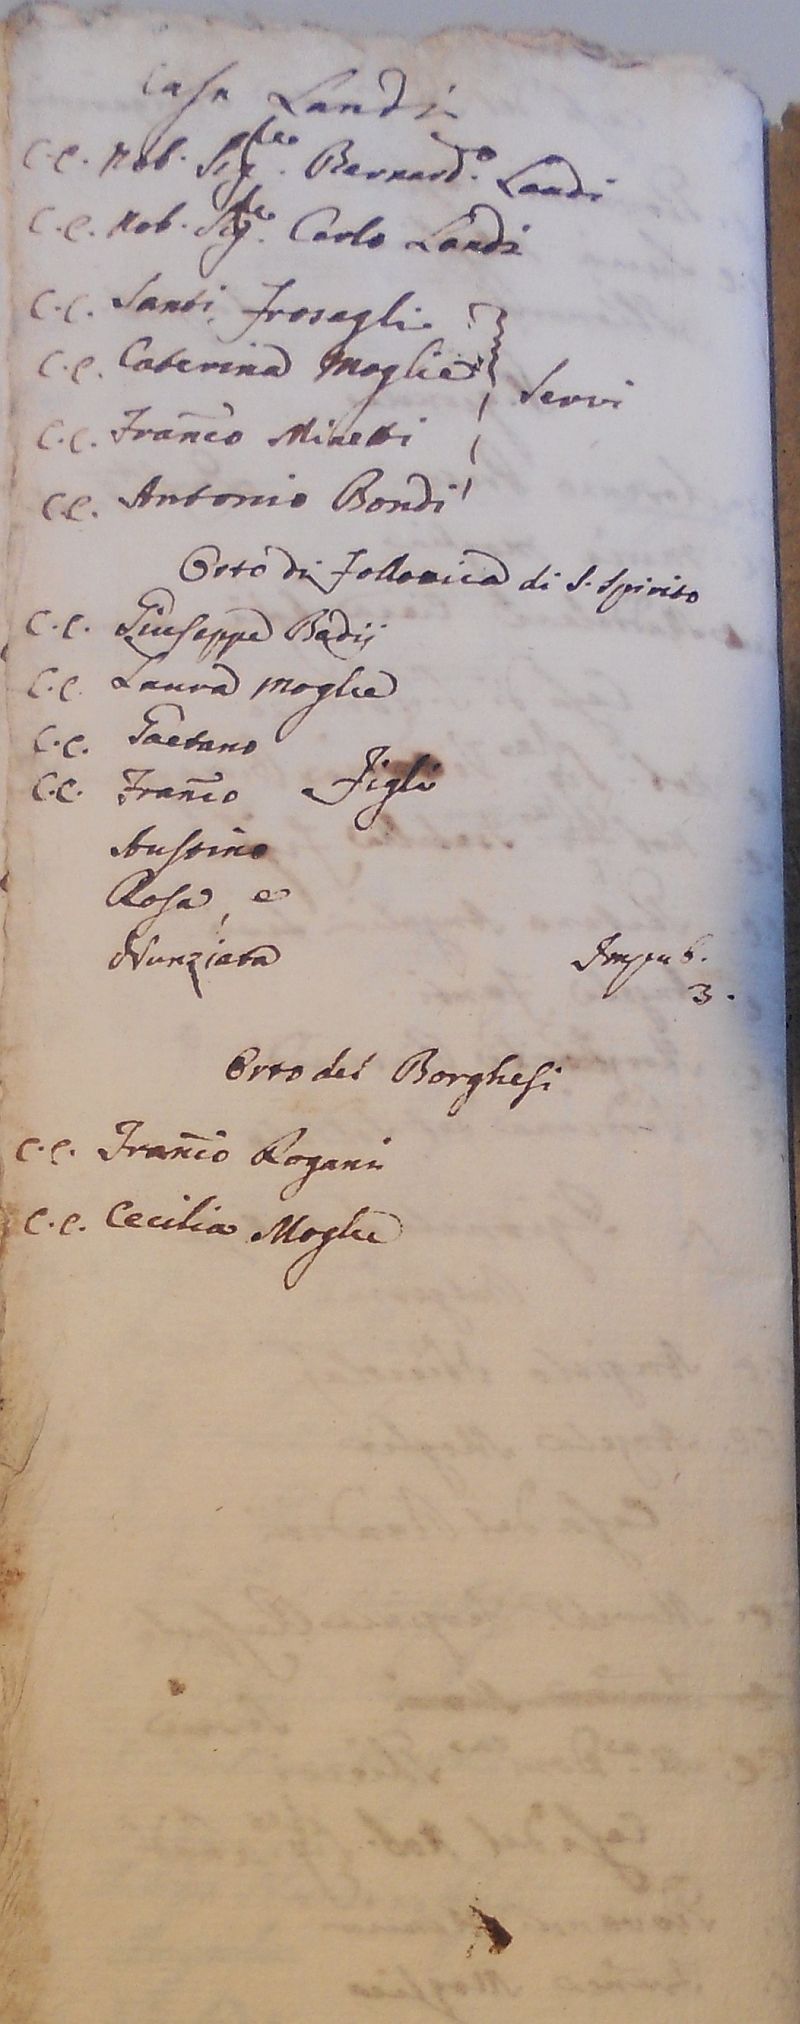 Casa Landi
C.C. Nob. Sig.re Bernard.o Landi
C.C. Nob. Sig.re Carlo Landi
C.C. Santi
C.C. Caterina Moglie Servi
C.C. Fran̄co Minetti
C.C. Antonio Bondi
Orto di Follonica di S. Spirito
C.C. Giuseppe Badij
C.C. Laura moglie
C.C. Gaetano
C.C. Fran̄co Figli
Austino
Rosa, e
Nunziata Impub.
3.
Orto dei Borghesi
C.C. Fran̄co Rogani
C.C. Cecilia Moglie